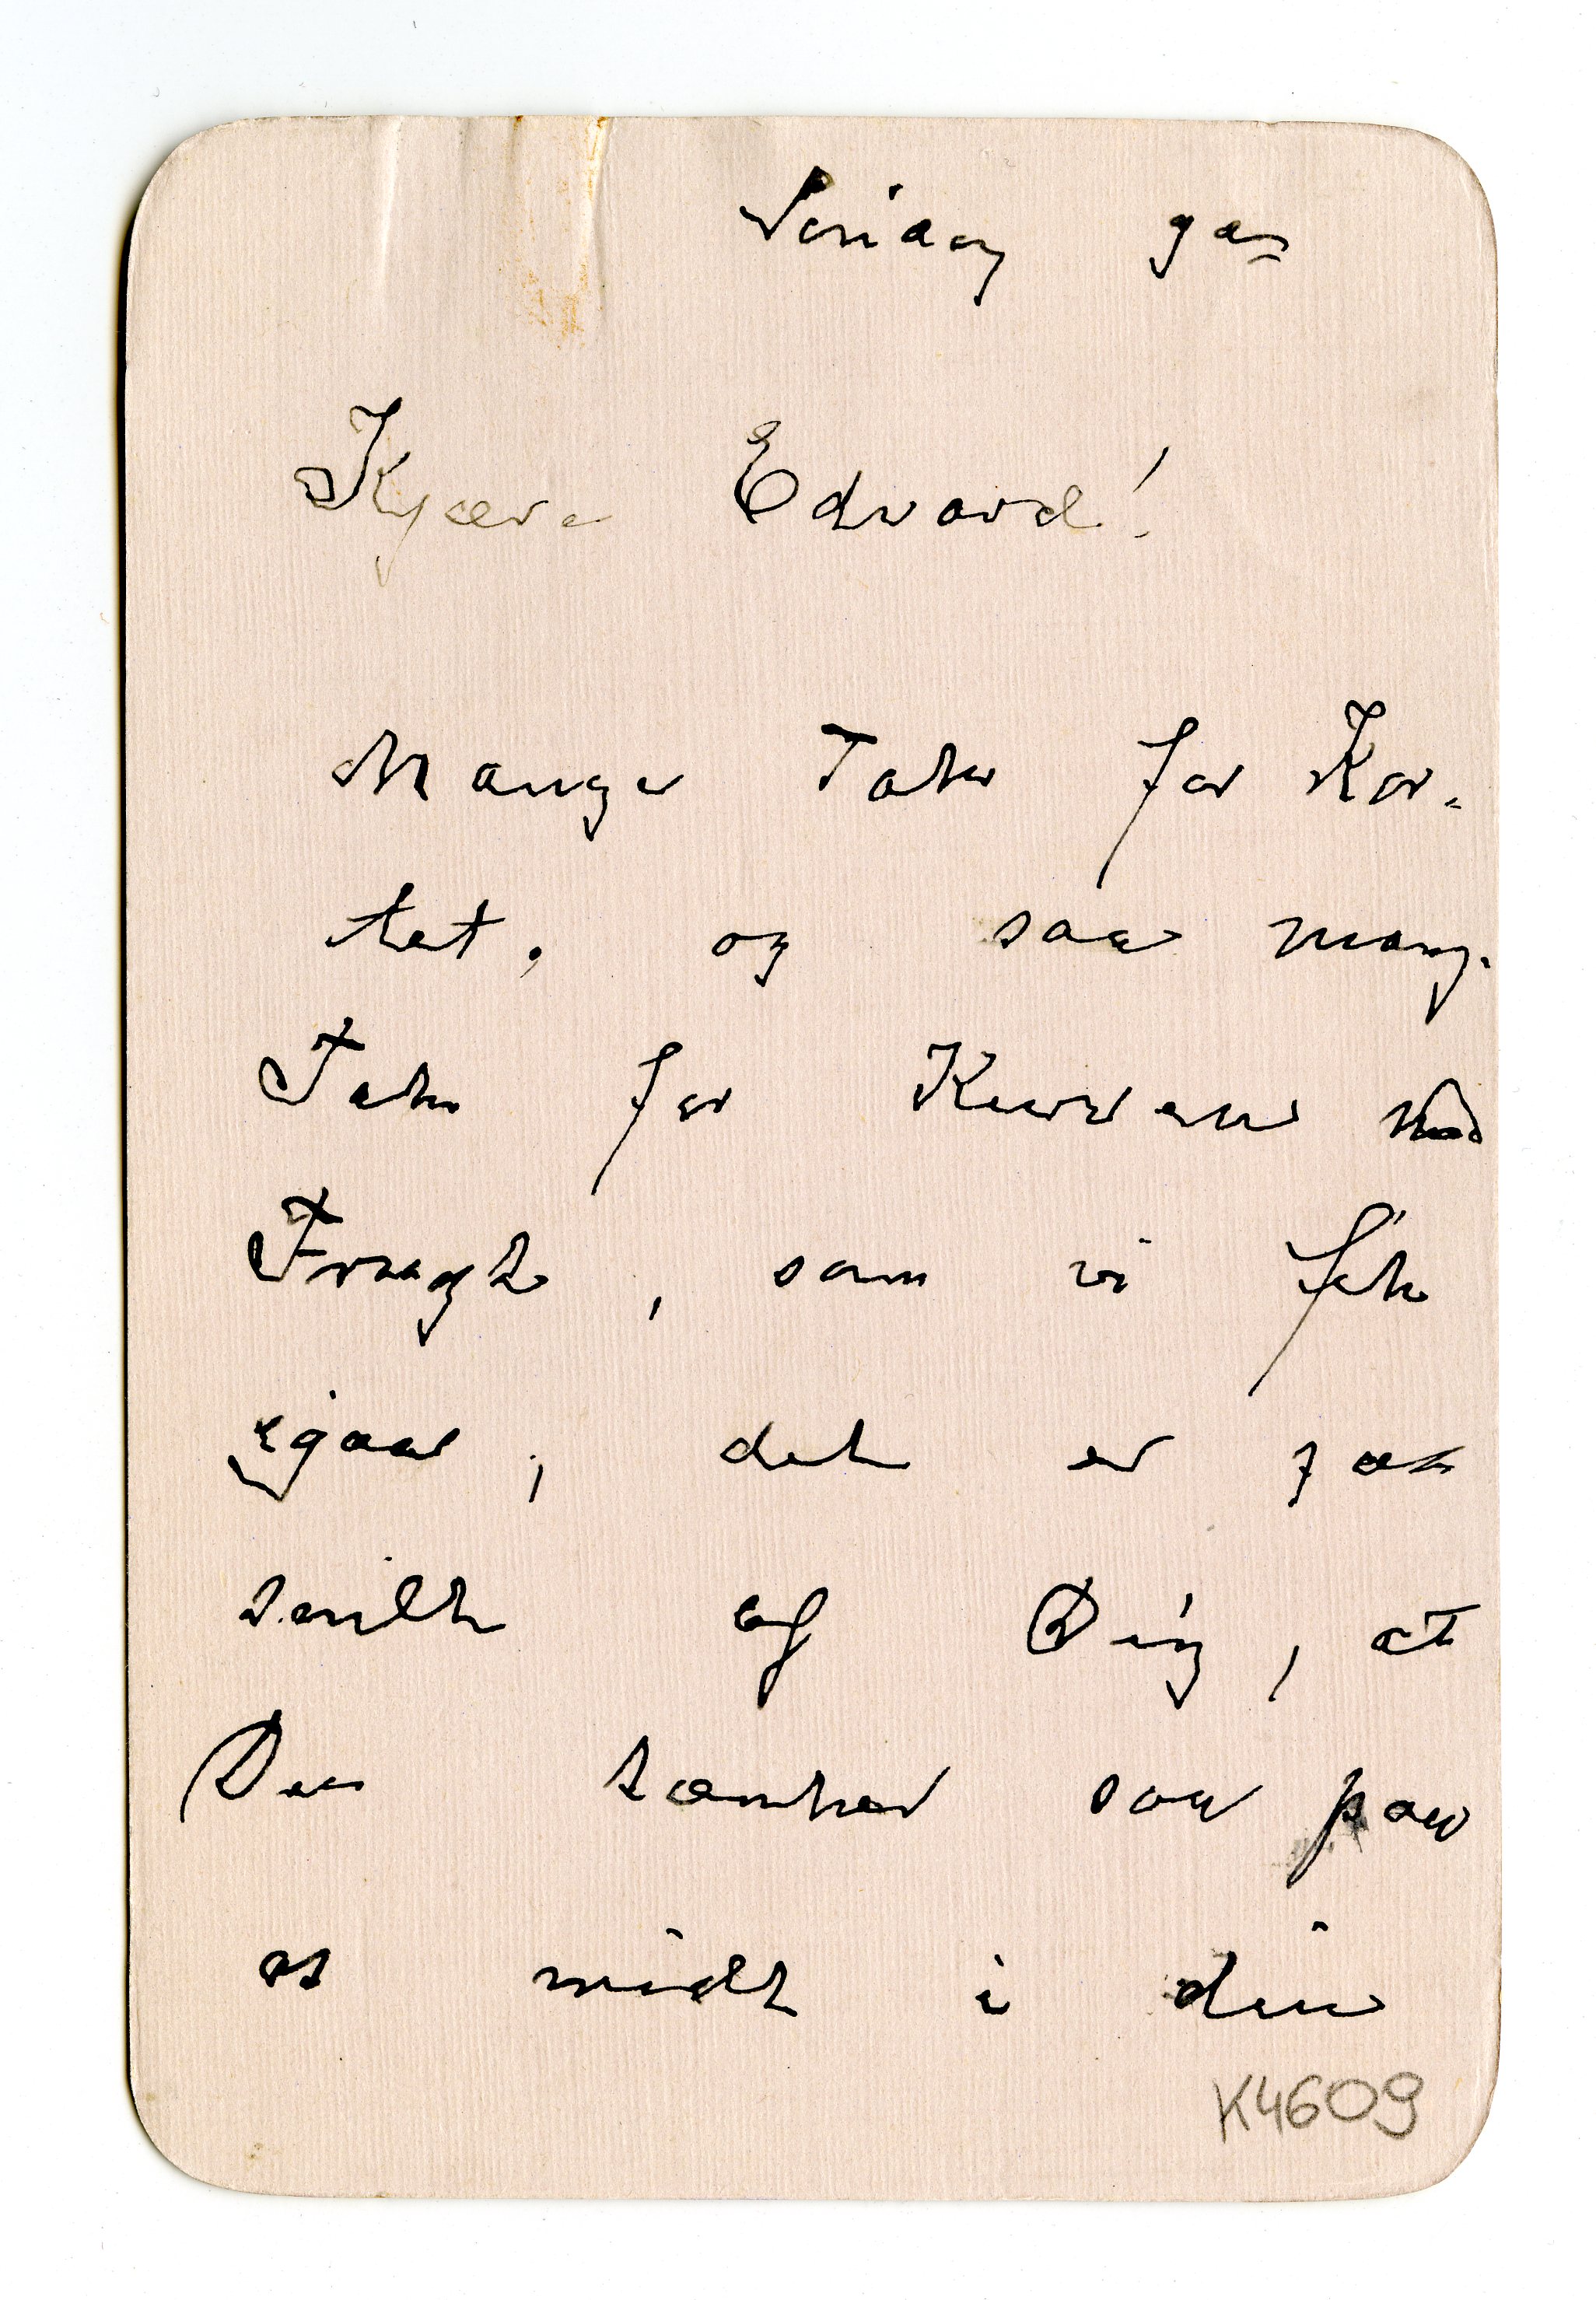 Kjære Edvard!
Mange Tak for Kor=
tet, og saa mang.
Tak for Kurven med
Frugt, som vi fik
igaar, det er saa
snilt af Dig, at
Du tænker saa paa
os midt i din
K4609